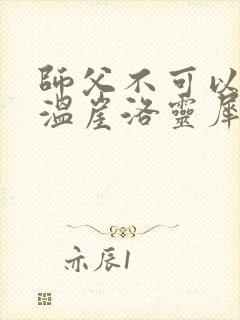 師父不可以
溫崖洛靈犀
亦辰1